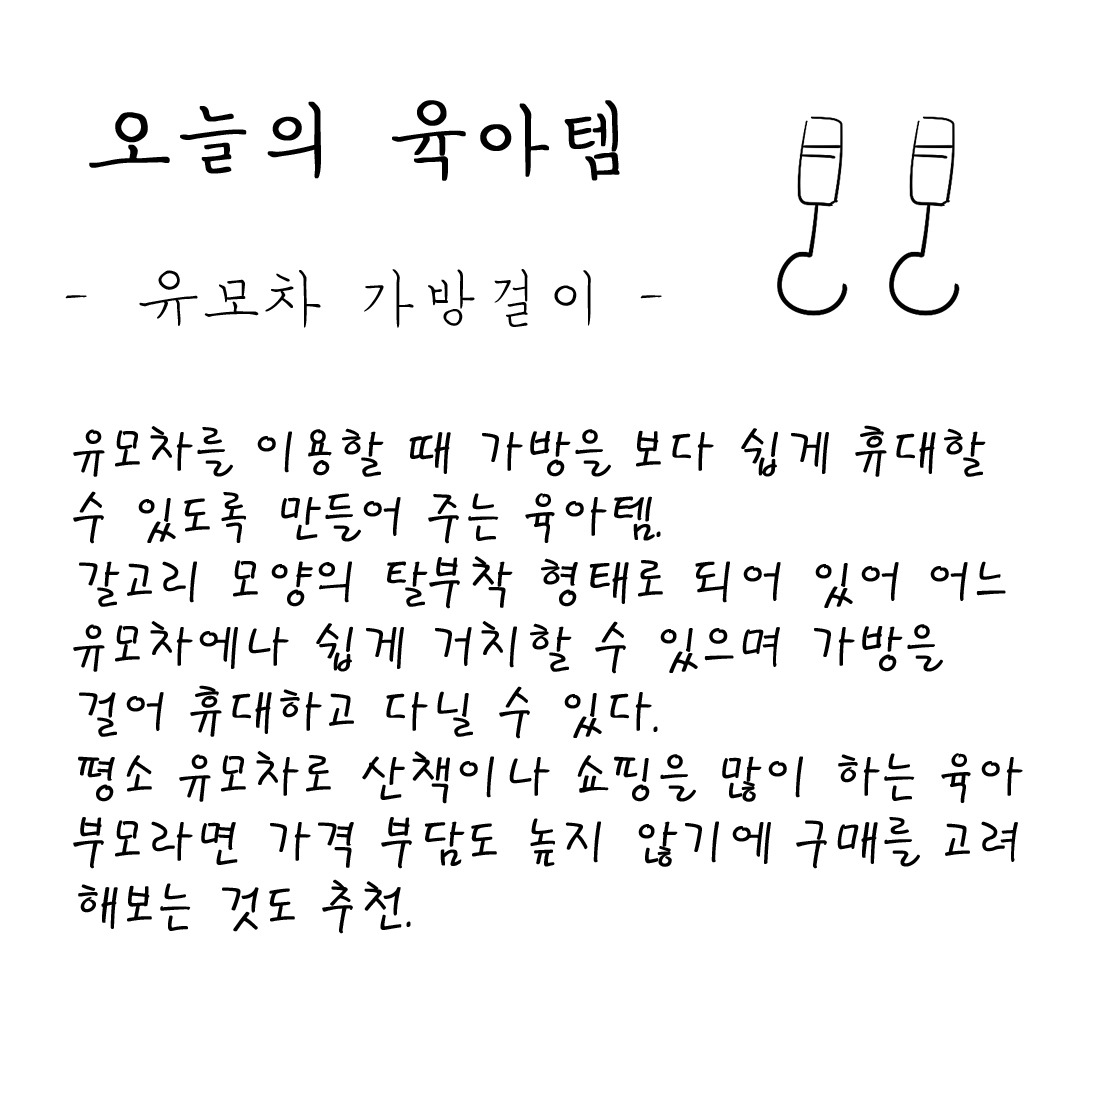 오늘의 육아템
- 유모차 가방걸이 -
유모차를 이용할 때 가방을 보다 쉽게 휴대할
수 있도록 만들어 주는 육아템.
갈고리 모양의 탈부착 형태로 되어 있어 어느
유모차에나 쉽게 거치할 수 있으며 가방을
걸어 휴대하고 다닐 수 있다.
평소 유모차로 산책이나 쇼핑을 많이 하는 육아
부모라면 가격 부담도 높지 않기에 구매를 고려
해보는 것도 추천.